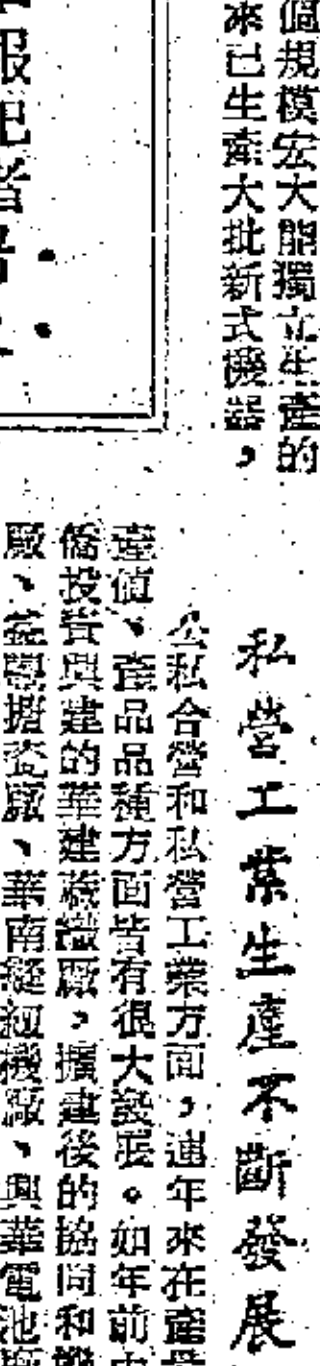 個規模宏大能獨立生產的
來已生產大批新式機器，
私營工業生產不斷發展
公私合營和私營工業方面，連年來在產量
產值、產品品種方面皆有很大發展。如年前由
僑投資興建的華建蔴織廠，擴建後的協同和機
廠、益豐搪瓷廠、華南縫紉機廠、興華電池廠
報記者